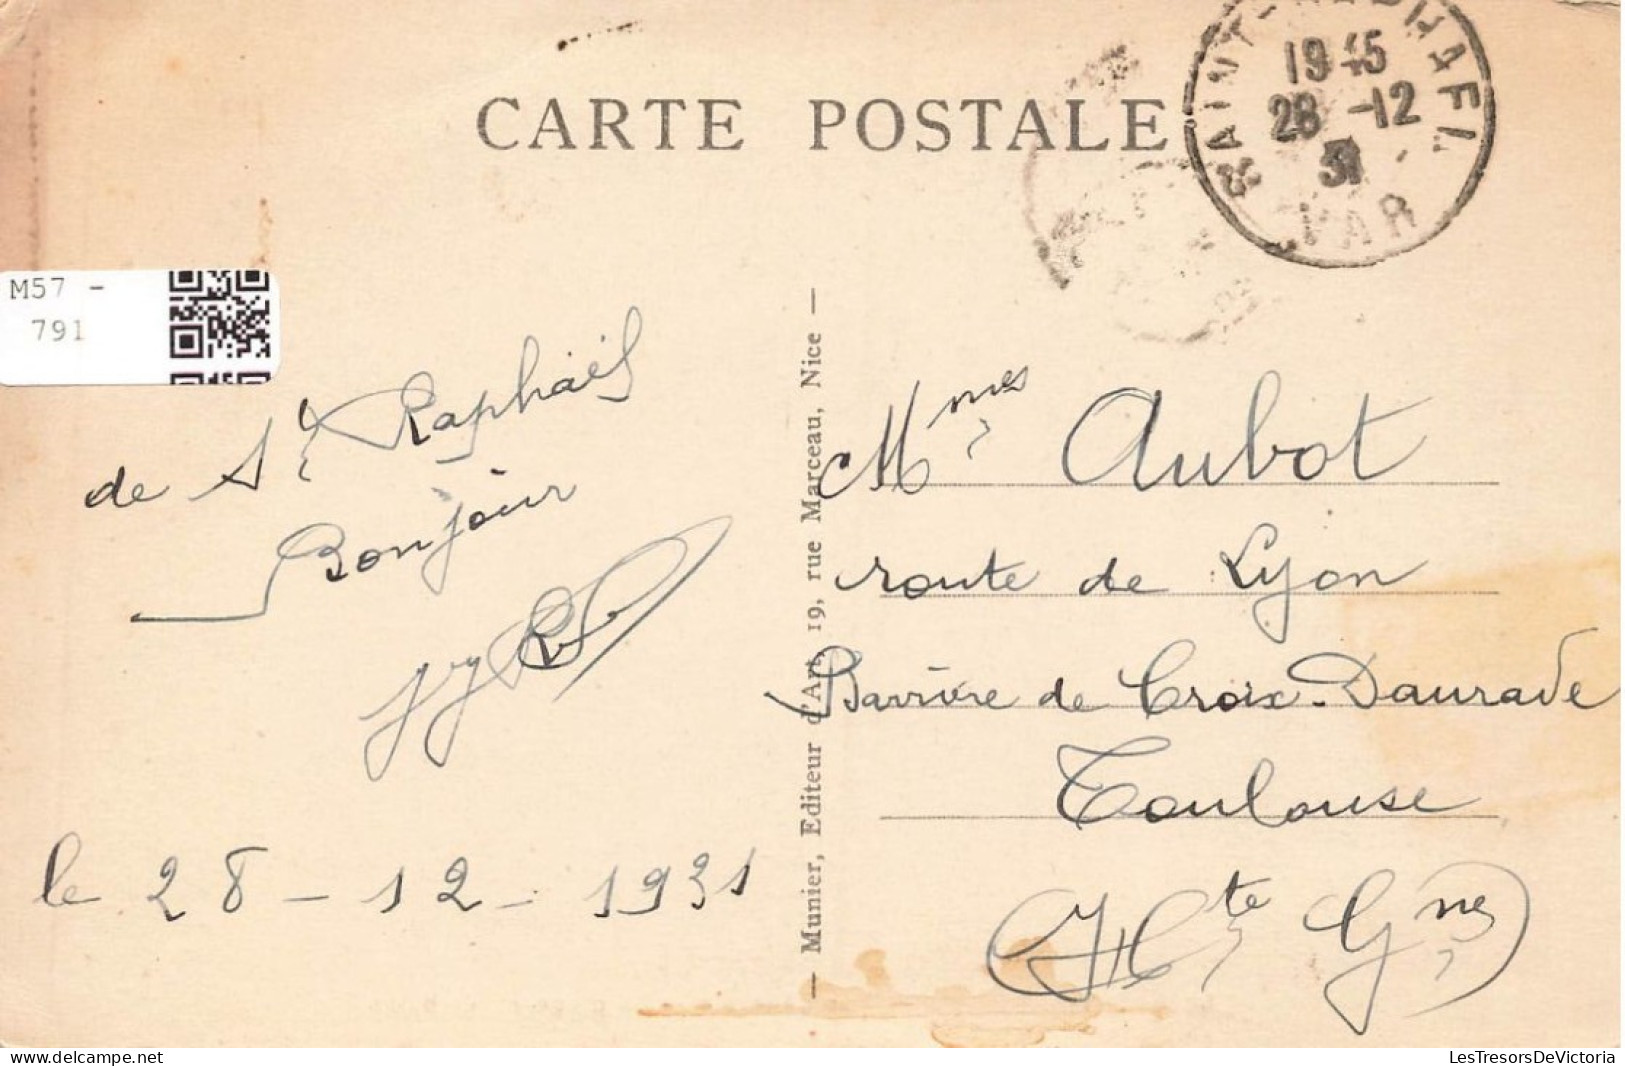 CARTE POSTALE
SAINT-RAPHAEL
1945
28 -12
31
VAR
M57 -
791
de St Raphaël
Bonjour
le 28 - 12 - 1931
— Munier, Editeur d'Art, 19, rue Marceau, Nice —
Mmes Aubot
route de Lyon
Barrière de Croix-Daurade
Toulouse
(Hte Gne)
LesTresorsDeVictoria